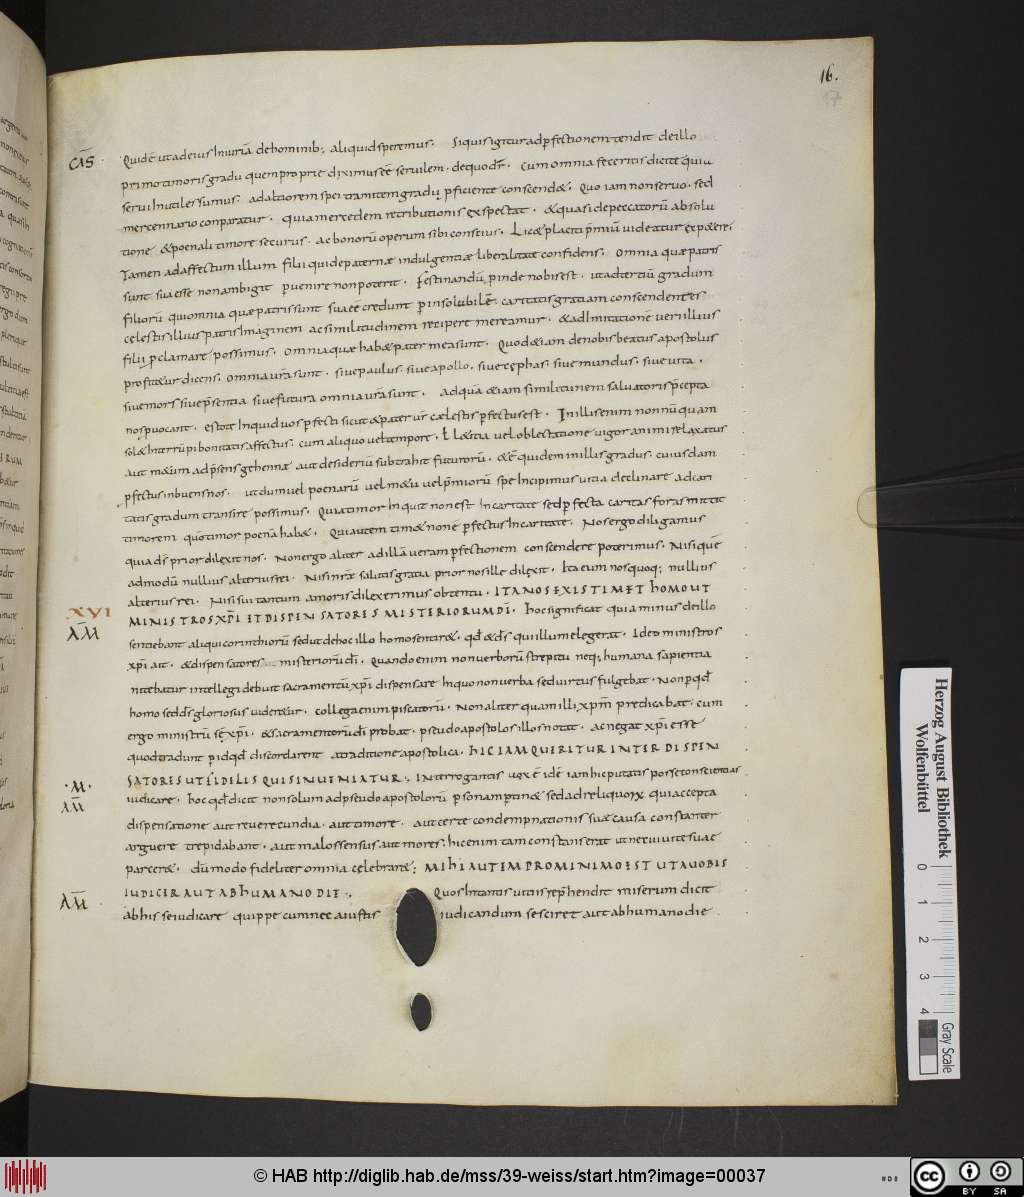 16.
17
CAS · Quidē ut adeius Iniuriā de hominib; aliquid speremus. Siquis igitur ad pfectionem tendit de illo
primo timoris gradu quem proprie diximus eē seruilem. de quo dr̄. Cum omnia feceritis dicite quia
serui Inutiles sumus. ad altiorem spei tramitem gradu pficiente conscend&. Quo iam non seruo. sed
mercennario conparatur. quia mercedem retributionis exspectat. & quasi de peccatorū absolu
tione & poenali timore securus. ac bonorū operum sibi conscius. Lic& placiti p̄miū uideatur exp&ere;
Tamen ad affectum illum filii qui de paternæ indulgentiæ liberalitate confidens. omnia quæ patris
sunt sua esse non ambigit puenire non poterit. Festinandū pinde nobis est. ut ad tertiū gradum
filiorū qui omnia quæ patris sunt sua eē credunt p insolubilē caritatis gratiam conscendentes
cęlestis illius patris Imaginem ac similitudinem recipere mereamur. & ad Imitationē ueri illius
filii pclamare possimus. omnia quæ hab& pater mea sunt. Quod & iam de nobis beatus apostolus
profit&ur dicens. omnia ur̄a sunt. siue paulus. siue apollo. siue cephas. siue mundus. siue uita.
siue mors siue p̄sentia siue futura omnia ur̄a sunt. ad quā & iam similitudinem saluatoris p̄cepta
nos puocant. estote Inquid uos pfecti sicut & pater ur̄ cælestis pfectus est. In illis enim nonnūquam
sol& Interrūpi bonitatis affectus. cum aliquo uel tempore. ł l&itia uel oblectatione uigor animi relaxatus
aut m&um ad p̄sens gehennæ aut desideriū subtrahit futurorū. & ē quidem in illis gradus. cuiusdam
pfectus inbuens nos. ut dum uel poenarū uel m&u uel p̄miorū spe Incipimus uitia declinare ad cari
tatis gradum transire possimus. Quia timor Inquit non est In caritate sed pfecta caritas foras mittit
timorem quo timor poenā hab&. Qui autem tim& non ē pfectus In caritate. Nos ergo diligamus
quia ds̄ prior dilexit nos. Non ergo aliter ad illā ueram pfectionem conscendere poterimus. Nisi quē
admodū nullius alterius rei. Nisi nr̄æ salutis gratia prior nos ille dilęxit. Ita eum nos quoq; nullius
alterius rei. Nisi sui tantum amoris dilexerimus obtentu. ITA NOS EXISTIMET HOMO UT
XVI MINISTROS XP̄I ET DISPENSATORES MISTERIORUM DĪ. hoc significat quia minus de illo
AM̄ sentiebant aliqui corinthiorū sed ut de hoc illo homo sentir&. qd̄ & ds̄ qui illum elegerat. Ideo ministros
xp̄i ait. & dispensatores misteriorū dī. Quando enim non uerborū strepitu neq; humana sapientia
nitebatur intellegi debuit sacramentū xp̄i dispensare In quo non uerba sed uirtus fulgebat. Non p qd̄
homo sed ds̄ gloriosus uider&ur. collega enim piscatorū. Non aliter quam illi xpm̄ predicabat. cum
ergo ministrū sē xp̄i. & sacramentorū dī probat. pseudoapostolos illos notat. ac negat xp̄i esse
quod tradunt p id qd̄ discordarent a traditione apostolica. HIC IAM QUERITUR INTER DISPEN
· M · SATORES UT FIDELIS QUIS INUENIATUR. Interrogantis uox ē idē iam hic putatis posse conscientias
AM̄ iudicare. hoc qd̄ dicit non solum ad pseudoapostolorū psonam ptin& sed ad reliquorx qui accepta
dispensatione aut reuerecundia. aut timore. aut certe condempnationis suæ causa constanter
arguere trepidabant. aut malos sensus. aut mores. hic enim tam constans erat ut nec uiuitę suae
parcer&. dū modo fideliter omnia celebrar&; MIHI AUTEM PRO MINIMO EST UT A VOBIS
IUDICER AUT AB HUMANO DIE. Quos Intantis uitiis reprehendit miserum dicit
AM̄ ab his se iudicare quippe cum nec a iustis iudicandum se sciret aut ab humano die
Herzog August Bibliothek
Wolfenbüttel
0 1 2 3 4
Gray Scale
© HAB http://diglib.hab.de/mss/39-weiss/start.htm?image=00037
cc BY SA